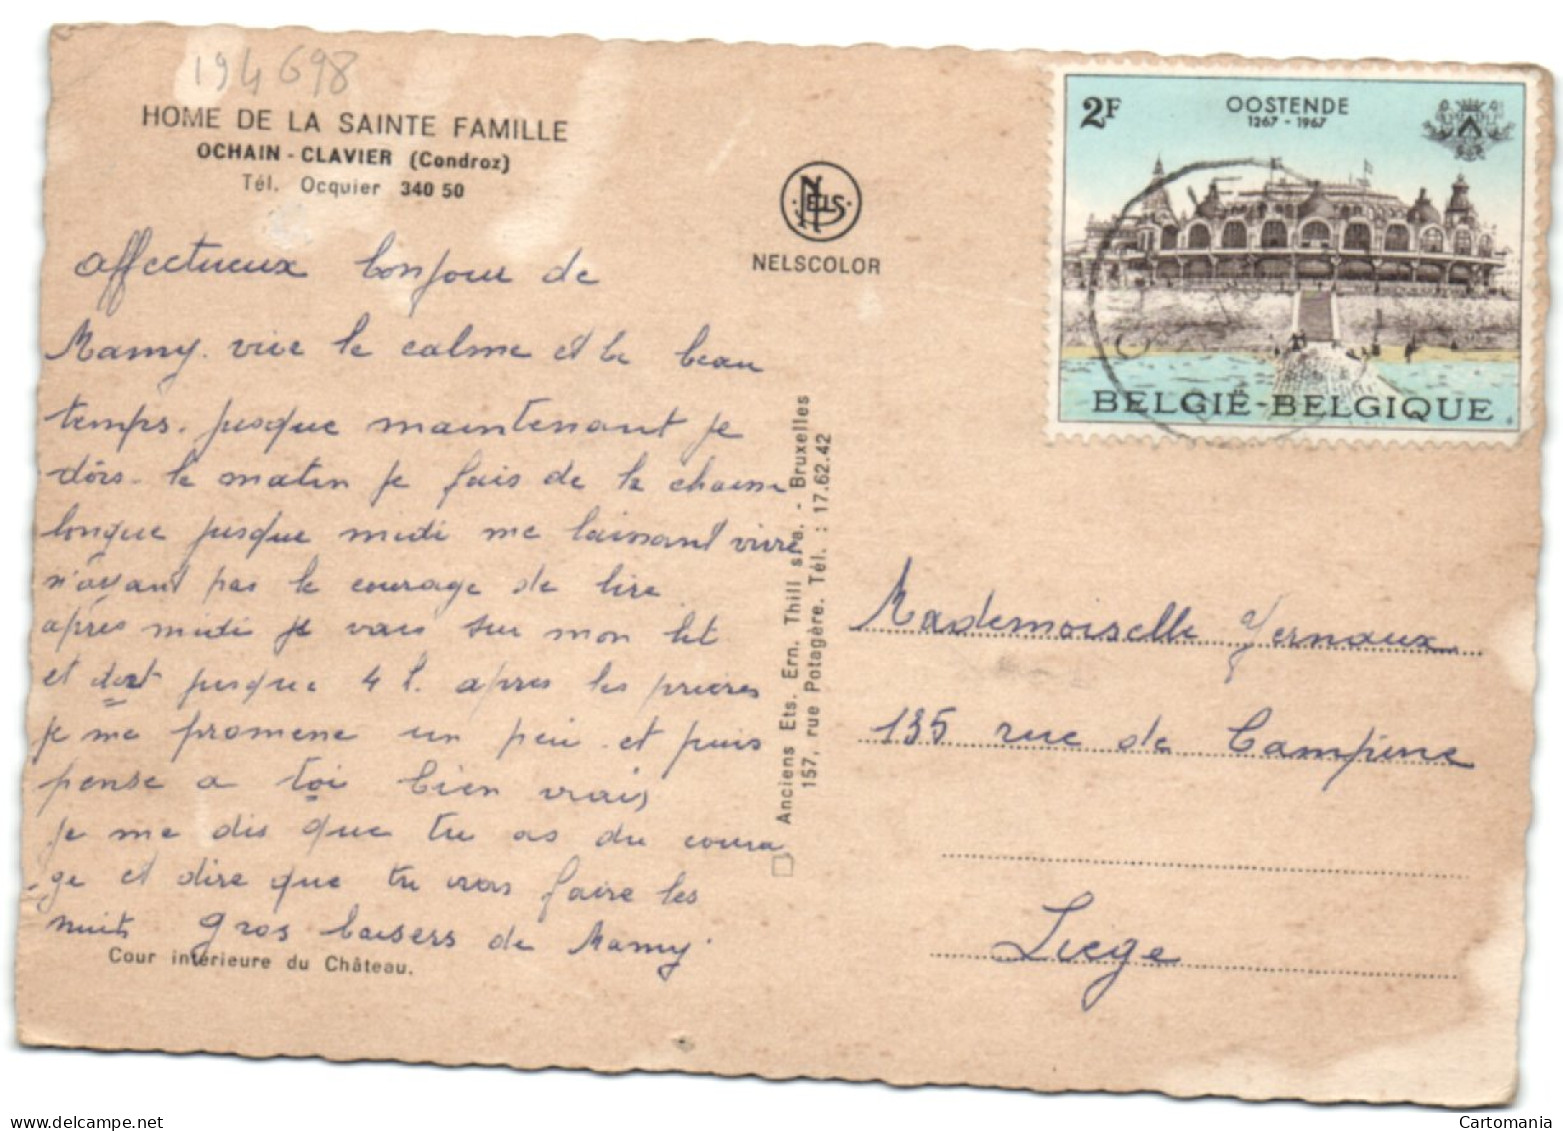 194698
HOME DE LA SAINTE FAMILLE
OCHAIN - CLAVIER (Condroz)
Tél. Ocquier 340 50
NELS
NELSCOLOR
2F
OOSTENDE
1267 - 1967
BELGIË-BELGIQUE
affectueux bonjour de
Mamy. vive le calme et le beau
temps. jusque maintenant je
dors. le matin je fais de la chaise
longue jusque midi me laissant vivre
n'ayant pas le courage de lire
après midi je vais sur mon lit
et dort jusque 4 h. apres les prieres
je me promene un peu. et puis
pense a toi bien vrais
je me dis que tu as du coura
ge et dire que tu vas faire les
nuits gros baisers de Mamy
Cour intérieure du Château.
Anciens Ets. Ern. Thill s. a. - Bruxelles
157, rue Potagère. Tél. : 17.62.42
Mademoiselle Vernaux
135 rue de Campine
Liège
www.delcampe.net
Cartomania